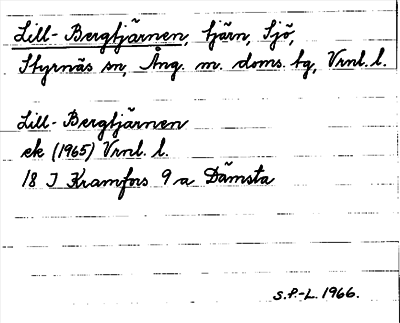 Lill-Bergtjärnen, tjärn, Sjö,
Styrnäs sn, Ång. m. doms. tg, Vrnl. l.
Lill-Bergtjärnen
ek (1965) Vrnl. l.
18 J Kramfors 9 a Dämsta
S.P.-L. 1966.